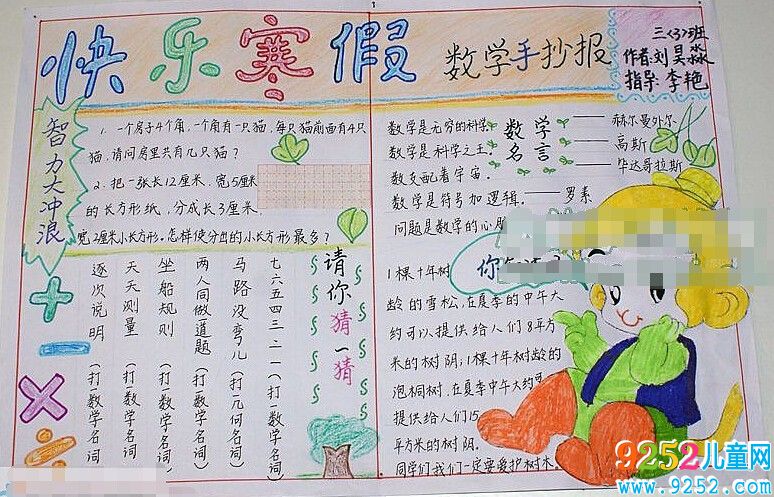 快乐寒假
数学手抄报
三〈3〉班
作者:刘昊淼
指导:李艳
智力大冲浪
1. 一个房子4个角,一个角有一只猫,每只猫前面有4只
猫,请问房里共有几只猫?
2. 把一张长12厘米、宽5厘米
的长方形纸,分成长3厘米、
宽2厘米小长方形。怎样使分出的小长方形最多?
请你猜一猜
七六五四三二一(打一数学名词)
马路没弯儿(打一几何名词)
两人同做道题(打一数学名词)
坐船规则(打一数学名词)
天天测量(打一数学名词)
逐次说明(打一数学名词)
数学名言
数学是无穷的科学。——赫尔曼外尔
数学是科学之王。——高斯
数支配着宇宙。——毕达哥拉斯
数学是符号加逻辑。——罗素
问题是数学的心
你
1棵十年树
龄的雪松,在夏季的中午大
约可以提供给人们8平方
米的树阴;1棵十年树龄的
泡桐树,在夏季中午大约可
提供给人们15
平方米的树阴。
同学们我们一定要爱护树木。
9252儿童网
www.9252.com